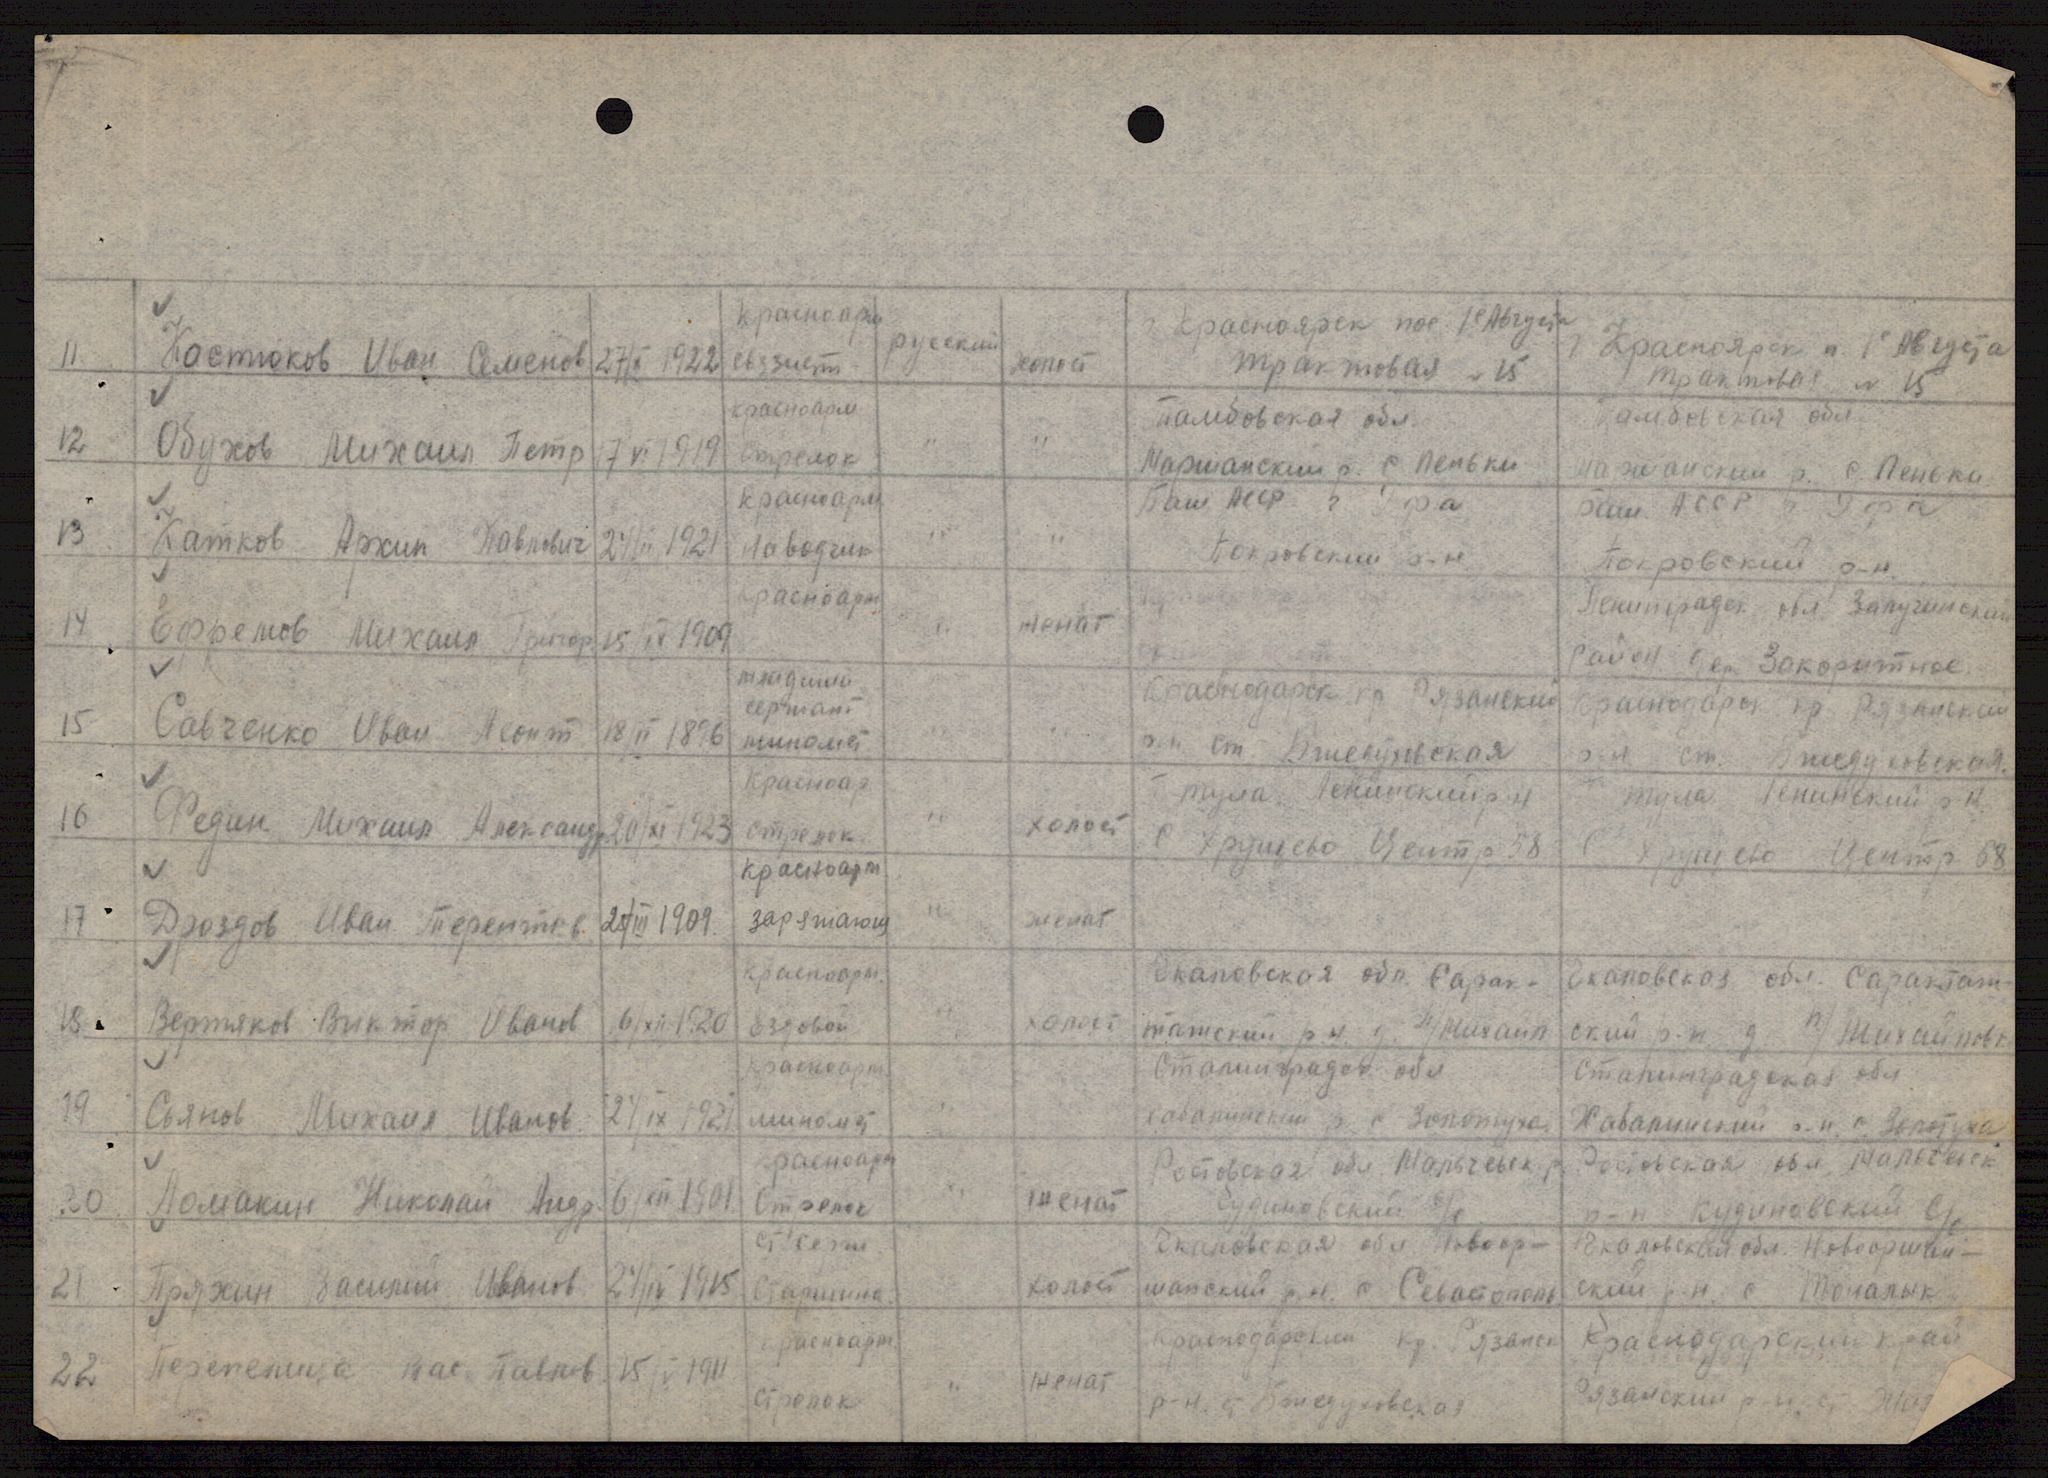 11 Костюков Иван Семенов 27/X 1922 Красноарм связист русский холост г Красноярск пос. 1е Августа Трактовая № 15 г Красноярск п. 1е Августа Трактовая № 15
12 Обухов Михаил Петр 17 VI 1919 красноарм Стрелок " " Тамбовская обл. Маршанский р. с Пеньки Тамбовская обл. Маршанский р. с Пеньки
13 Катков Архип Павлович 24/II 1921 Красноарм Наводчик " " Баш АССР г Уфа Покровский р-н Баш. АССР г Уфа Покровский р-н.
14 Ефремов Михаил Григор 15/IX 1909 Красноарм " женат Ленинградск обл Залучинский район дер Закоритное.
15 Савченко Иван Леонт 18/II 1896 младший сержант миномет " " Краснодарск кр Рязанский р-н ст. Бжедуховская Краснодарск кр. Рязанский р-н ст. Бжедуховская.
16 Федин Михаил Александр 20/XI 1923 Красноар Стрелок " холост Г Тула Ленинский р-н с Хрущево Центр 58 Г Тула Ленинский р-н с Хрущево Центр 68
17 Дроздов Иван Терентьев 1909. красноарм заряжающ " женат
18 Вертяков Виктор Иванов 6/XII 1920 красноарм. Ездовой " холост Чкаловская обл. Сарак-ташский р-н. д. Н/Михайл Чкаловская обл. Саракташ-ский р-н. д. Н/Михайловк
19 Сьянов Михаил Иванов 24/IX 1921 Красноарм миномет " Сталинградск обл Хабалинский р. с Золотуха. Сталинградская обл Хабалинский р-н. с. Золотуха
20 Ломакин Николай Андр 6/XII 1901 Красноарм Стрелок " женат Ростовская обл Мальчевск р Кудиновский с/с Ростовская обл. Мальчевск р-н Кудиновский С/с
21 Пряхин Василий Иванов 24/IV 1915 ст серж Старшина. холост Чкаловская обл Новоор-шанский р.н. с Севастополь Чкаловская обл. Новооршан-ский р-н. с
22 Перепелица Вас. Павлов 15/V 1911 Красноарм. Стрелок " женат Краснодарский кр. Рязанск р-н. ст Бжедуховская Краснодарский край Рязанский р-н. ст.